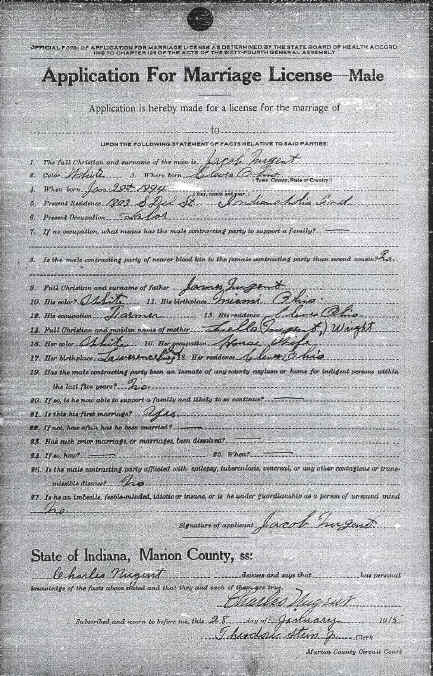 OFFICIAL FORM OF APPLICATION FOR MARRIAGE LICENSE AS DETERMINED BY THE STATE BOARD OF HEALTH ACCORD
ING TO CHAPTER 129 OF THE ACTS OF THE SIXTY-FOURTH GENERAL ASSEMBLY
Application For Marriage License—Male
Application is hereby made for a license for the marriage of
to
UPON THE FOLLOWING STATEMENT OF FACTS RELATIVE TO SAID PARTIES:
1. The full Christian and surname of the man is Jacob Nugent
2. Color White 3. Where born Cleves Ohio
(Town, County, State or Country)
4. When born Jan 28th 1894
5. Present Residence 1802 S St. Indianapolis Ind
6. Present Occupation Labor
7. If no occupation, what means has the male contracting party to support a family?
8. Is the male contracting party of nearer blood kin to the female contracting party than second cousin? No
9. Full Christian and surname of father James Nugent
10. His color White 11. His birthplace Miami Ohio
12. His occupation Farmer 13. His residence Cleves Ohio
14. Full Christian and maiden name of mother Luella (Nugent) Wright
15. Her color White 16. Her occupation House Wife
17. Her birthplace Lawrenceburg 18. Her residence Cleves, Ohio
19. Has the male contracting party been an inmate of any county asylum or home for indigent persons within
the last five years? No
20. If so, is he now able to support a family and likely to so continue?
21. Is this his first marriage? Yes
22. If not, how often has he been married?
23. Has such prior marriage, or marriages, been dissolved?
24. If so, how? 25. When?
26. Is the male contracting party afflicted with epilepsy, tuberculosis, venereal, or any other contagious or trans-
missible disease? No
27. Is he an imbecile, feeble-minded, idiotic or insane, or is he under guardianship as a person of unsound mind
No
Signature of applicant Jacob Nugent
State of Indiana, Marion County, ss:
Charles Nugent deposes and says that has personal
knowledge of the facts above stated and that they and each of them are true.
Charles Nugent
Subscribed and sworn to before me, this 28 day of January 1915
Theodore Stein Jr. Clerk
Marion County Circuit Court